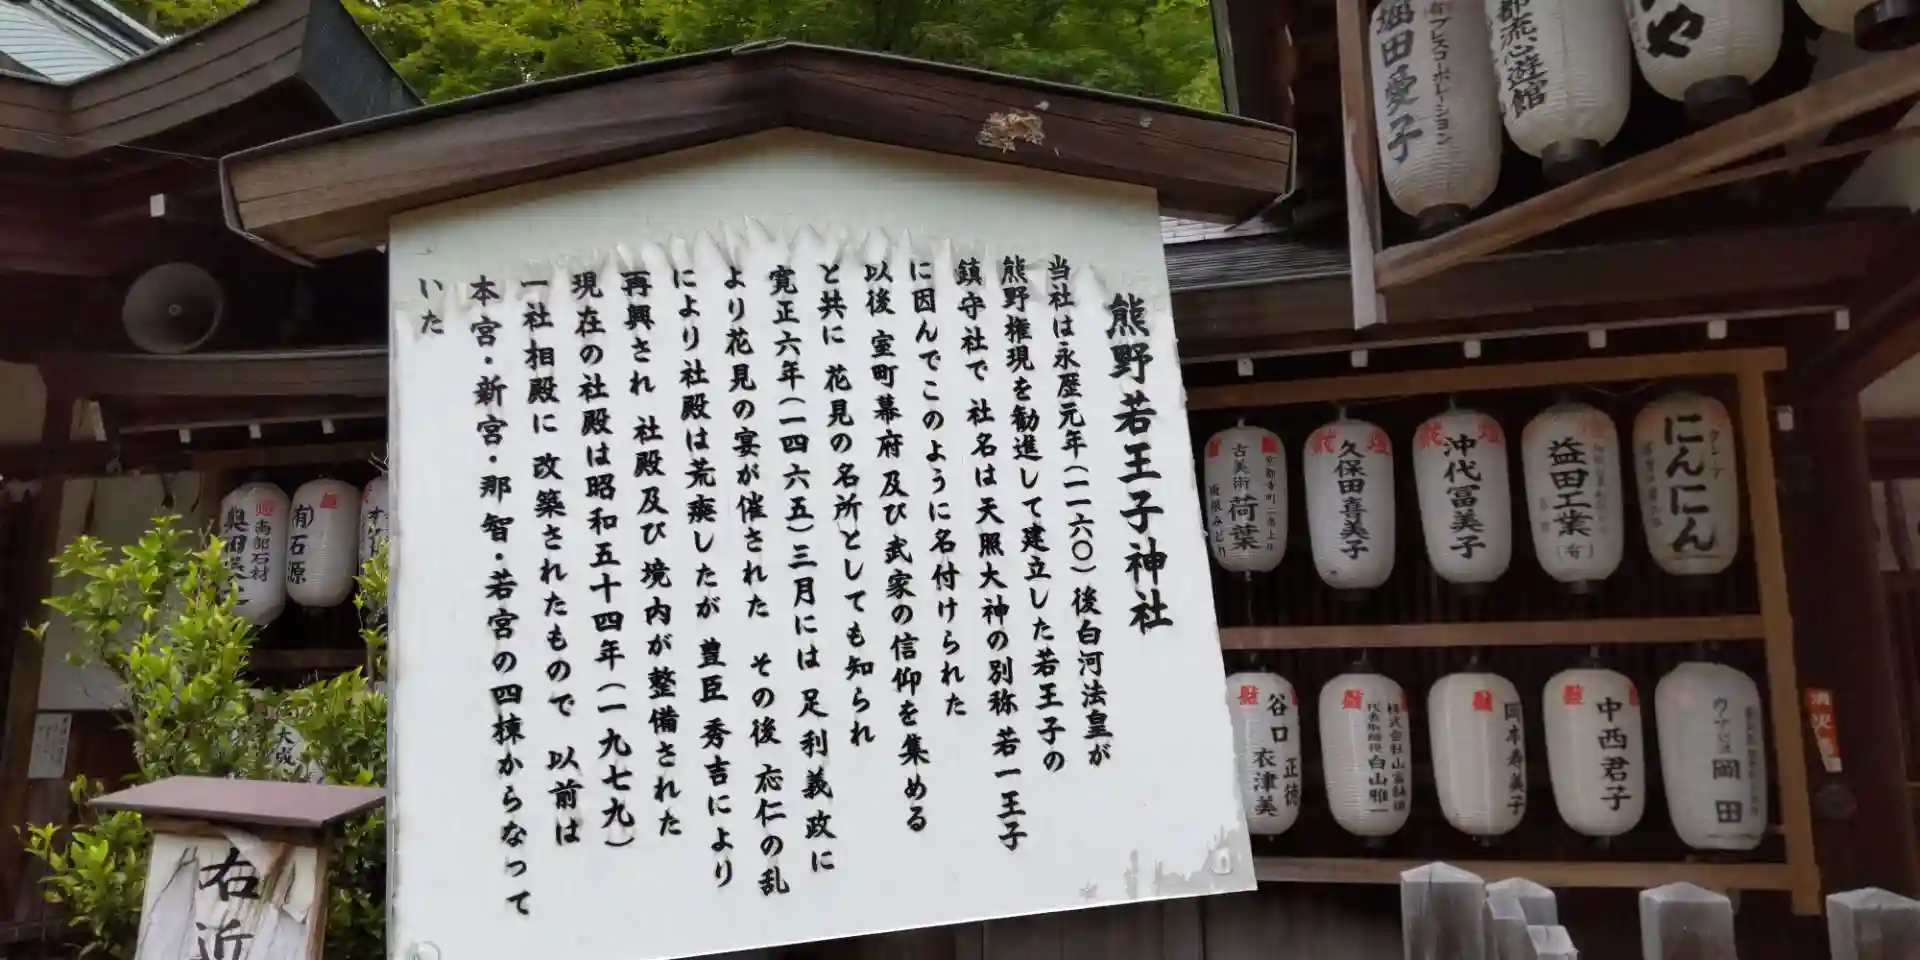 熊野若王子神社
当社は永歴元年(一一六〇)後白河法皇が
熊野権現を勧進して建立した若王子の
鎮守社で 社名は天照大神の別称 若一王子
に因んでこのように名付けられた
以後 室町幕府 及び武家の信仰を集める
と共に 花見の名所としても知られ
寛正六年(一四六五)三月には 足利義政に
より花見の宴が催された その後 応仁の乱
により社殿は荒廃したが 豊臣 秀吉により
再興され 社殿及び境内が整備された
現在の社殿は昭和五十四年(一九七九)
一社 相殿に 改築されたもので 以前は
本宮・新宮・那智・若宮の四棟からなって
いた
堀田愛子
(有)プレスコーポレーション
や
古美術 荷葉
久保田喜美子
沖代冨美子
益田工業(有)
クレープ
にんにん
谷口 正徳
衣津美
岡本寿美子
中西君子
岡田
南部石材
(有)石源
右近